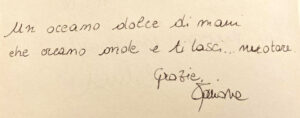 Un oceano dolce di mani
che creano onde e ti lasci... nuotare.
Grazie.